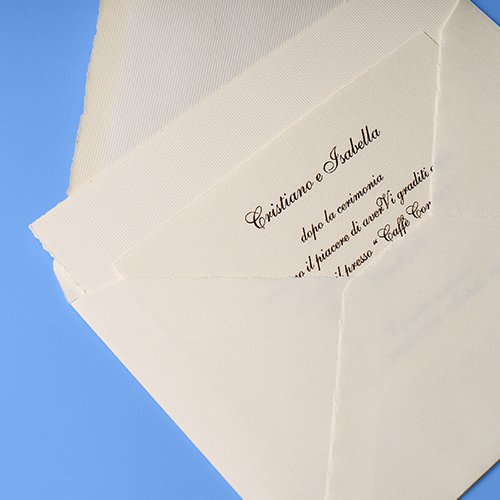 Cristiano e Isabella
dopo la cerimonia
il piacere di averVi graditi
presso "Caffè